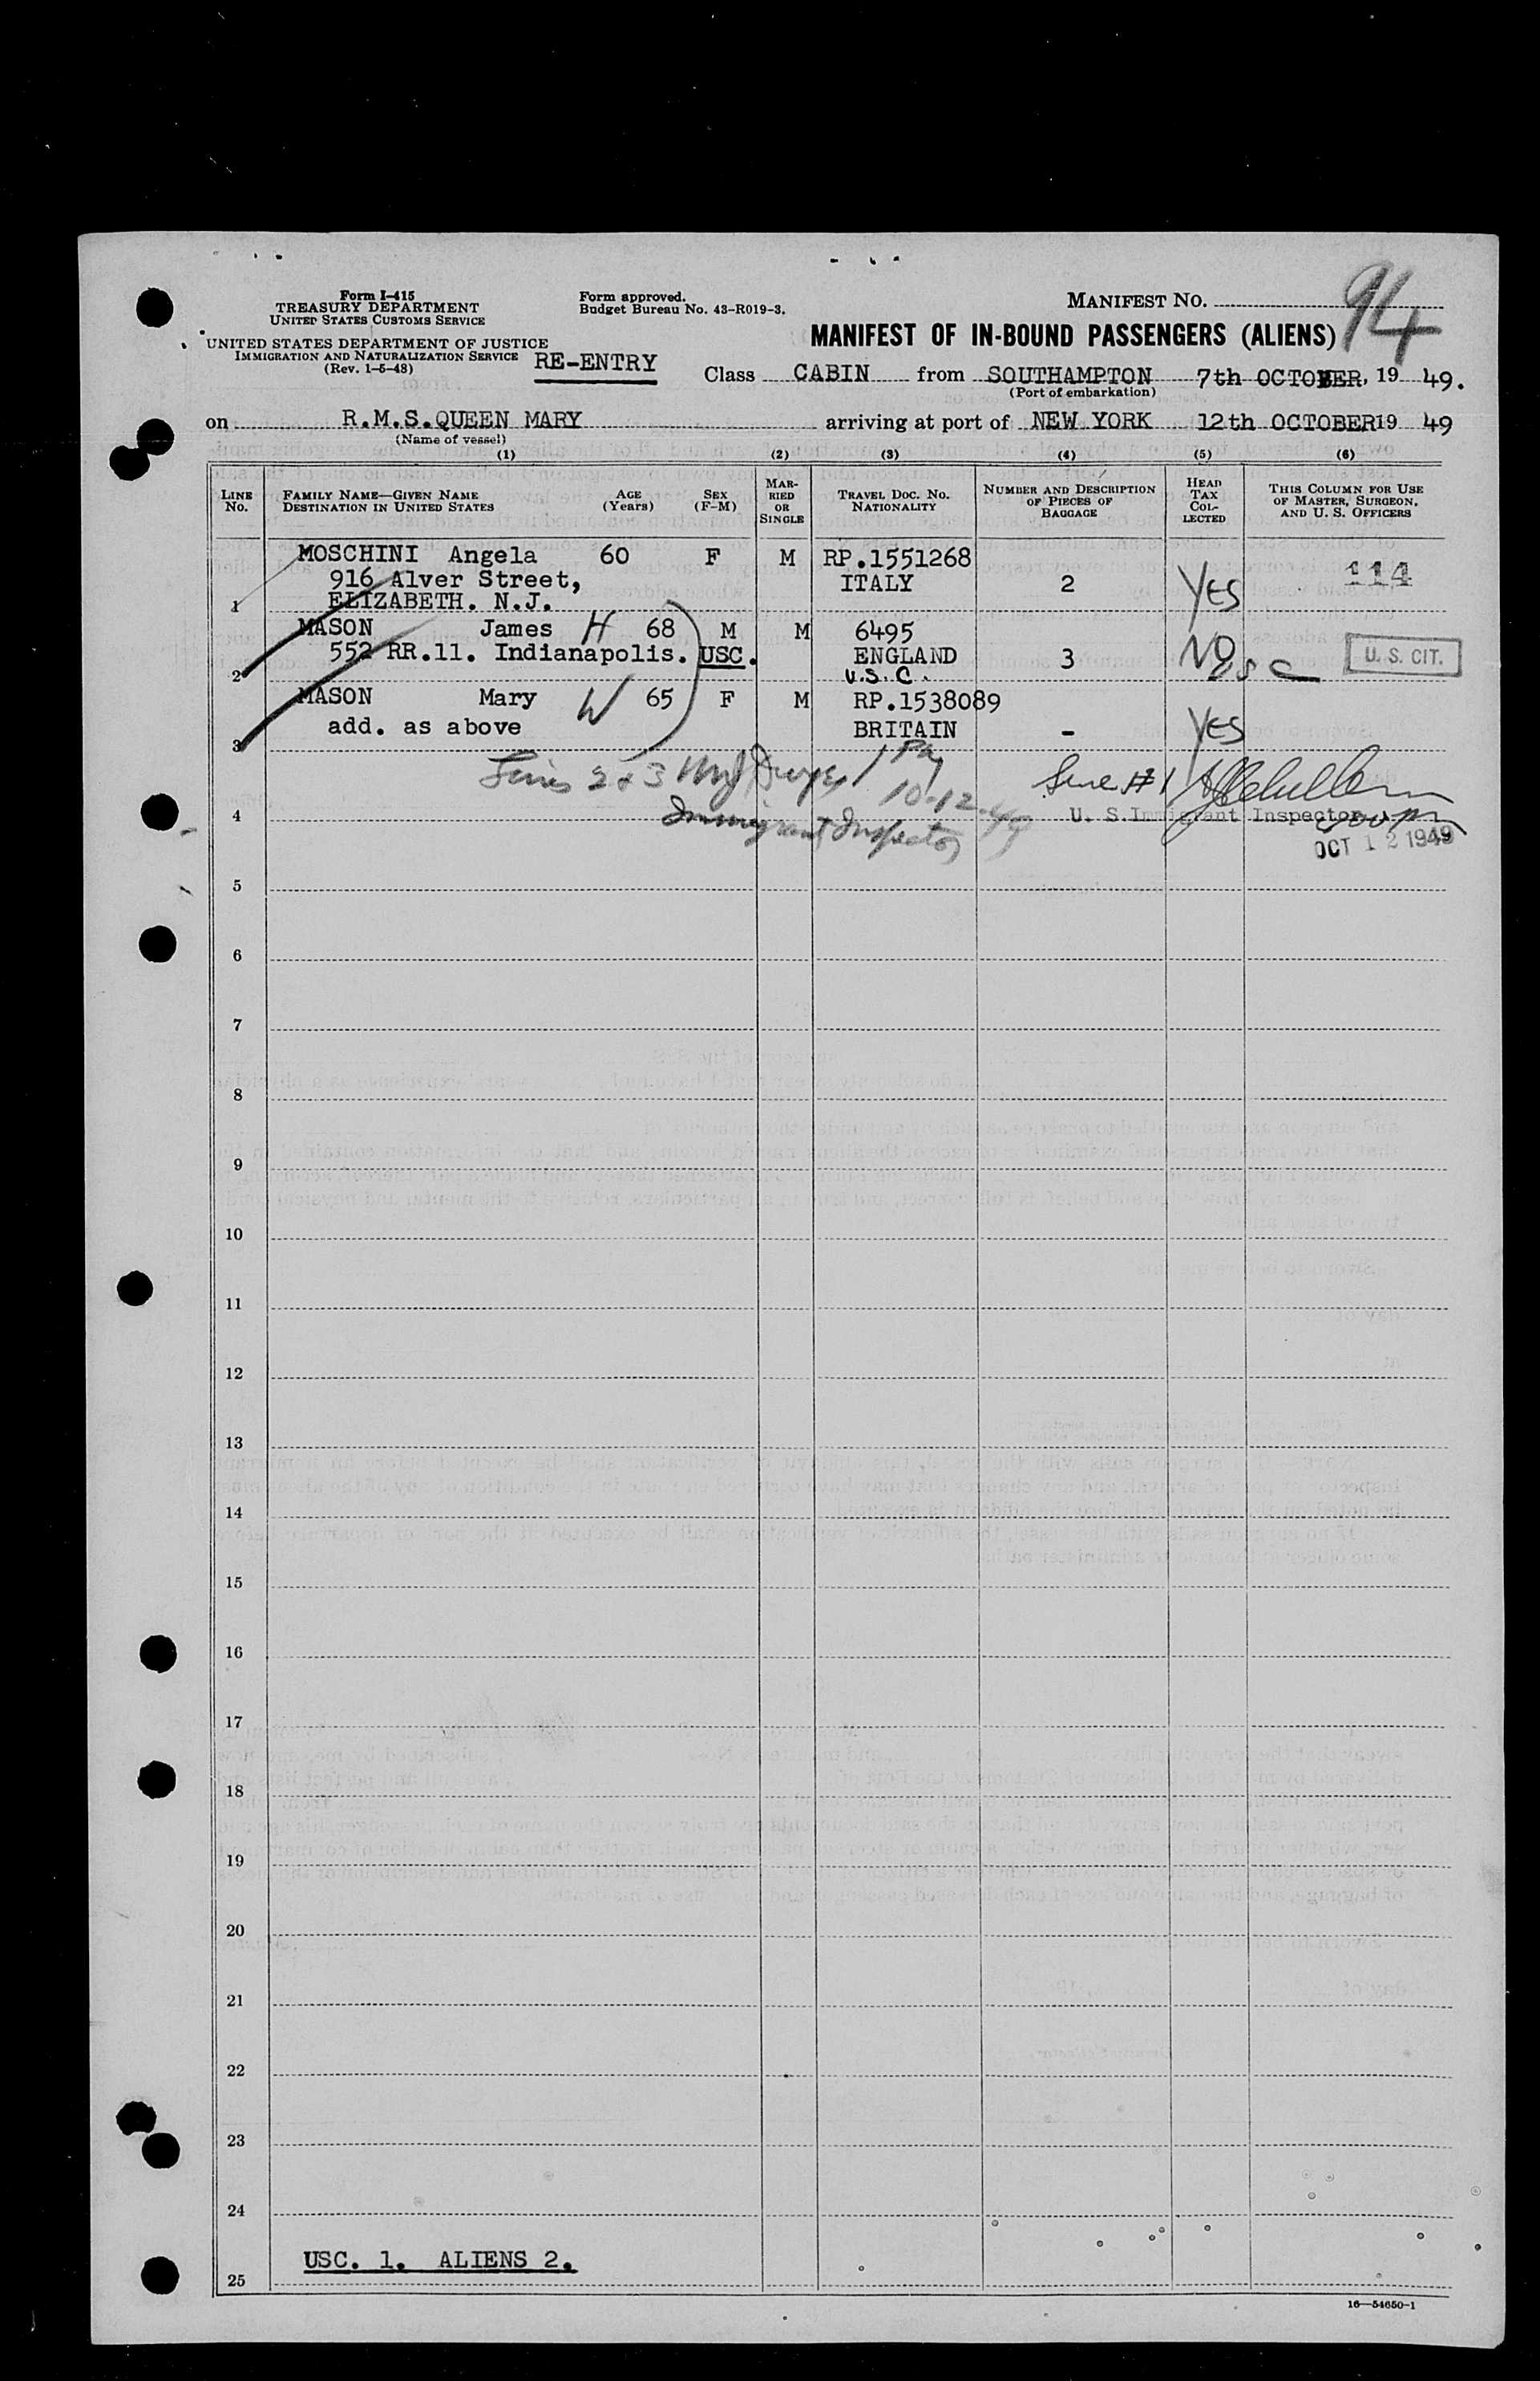 Form I-415
TREASURY DEPARTMENT
UNITED STATES CUSTOMS SERVICE
UNITED STATES DEPARTMENT OF JUSTICE
IMMIGRATION AND NATURALIZATION SERVICE
(Rev. 1-5-48)
RE-ENTRY
Form approved.
Budget Bureau No. 43-R019-3.
MANIFEST NO. 94
MANIFEST OF IN-BOUND PASSENGERS (ALIENS)
Class CABIN from SOUTHAMPTON 7th OCTOBER, 19 49.
(Port of embarkation)
on R.M.S.QUEEN MARY arriving at port of NEW YORK 12th OCTOBER19 49
(Name of vessel)
(1) (2) (3) (4) (5) (6)
LINE NO. FAMILY NAME—GIVEN NAME DESTINATION IN UNITED STATES AGE (Years) SEX (F-M) MARRIED OR SINGLE TRAVEL DOC. NO. NATIONALITY NUMBER AND DESCRIPTION OF PIECES OF BAGGAGE HEAD TAX COLLECTED THIS COLUMN FOR USE OF MASTER, SURGEON, AND U. S. OFFICERS
MOSCHINI Angela 60 F M RP.1551268
916 Alver Street, ITALY 2 YES 114
1 ELIZABETH. N.J.
MASON James H 68 M M 6495
552 RR.11. Indianapolis. USC. ENGLAND 3 NO U. S. CIT.
2 U.S.C. USC
MASON Mary W 65 F M RP.1538089
add. as above BRITAIN - YES
3
Lines 2 & 3 1 PM
10-12-49
Immigrant Inspector
Line #1
4 U. S. Immigrant Inspector
OCT 12 1949
5
6
7
8
9
10
11
12
13
14
15
16
17
18
19
20
21
22
23
24
USC. 1. ALIENS 2.
25
16—54650-1